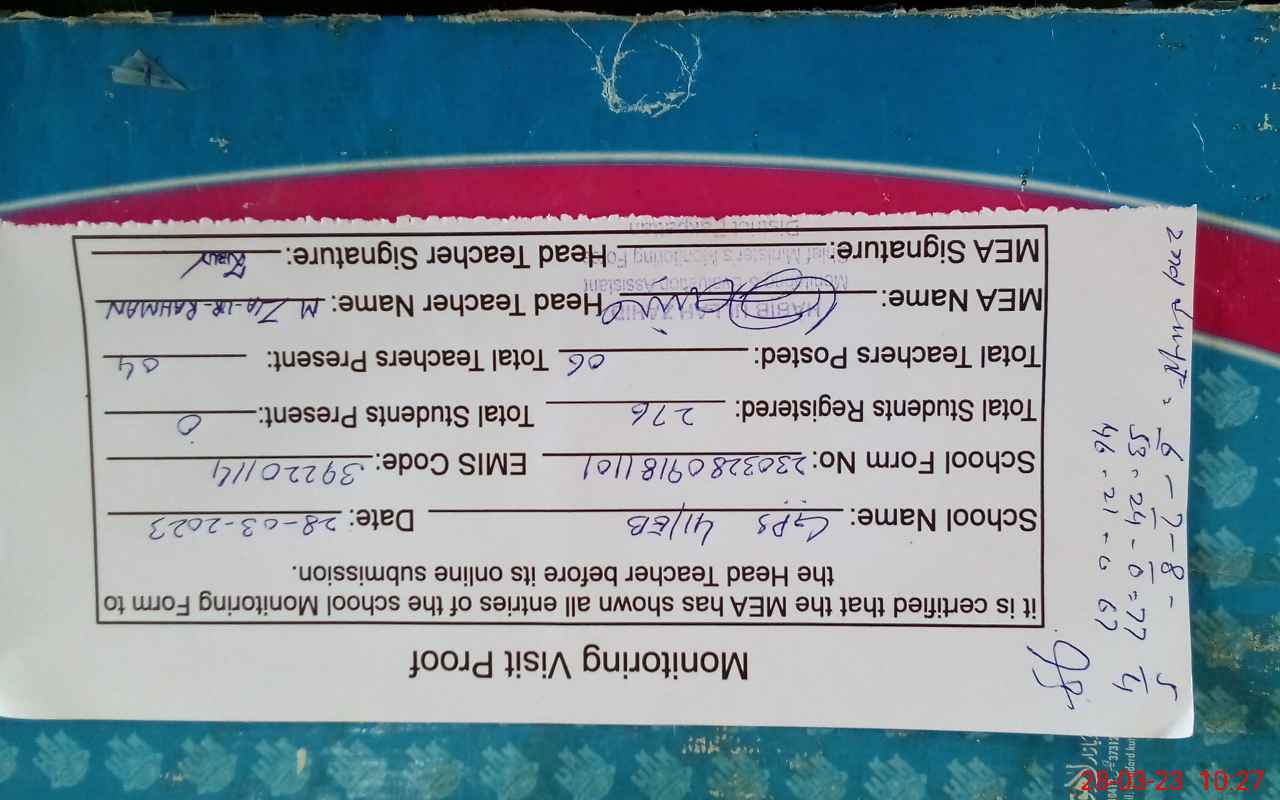 Monitoring Visit Proof
it is certified that the MEA has shown all entries of the school Monitoring Form to
the Head Teacher before its online submission.
School Name: GPS 41/EB Date: 28-03-2023
School Form No: 23032809181101 EMIS Code: 39220114
Total Students Registered: 276 Total Students Present: 0
Total Teachers Posted: 06 Total Teachers Present: 04
MEA Name: Head Teacher Name: M Zia-UR-RAHMAN
HABIB ULLAH ZAHID
Monitoring & Evaluation Assistant
MEA Signature: Head Teacher Signature:
Chief Minister's Monitoring Fo
District Pakpattan
6 - 7 - 8 -
53 - 24 - 0 = 77
46 - 21 - 0 67
28-03-23 10:27